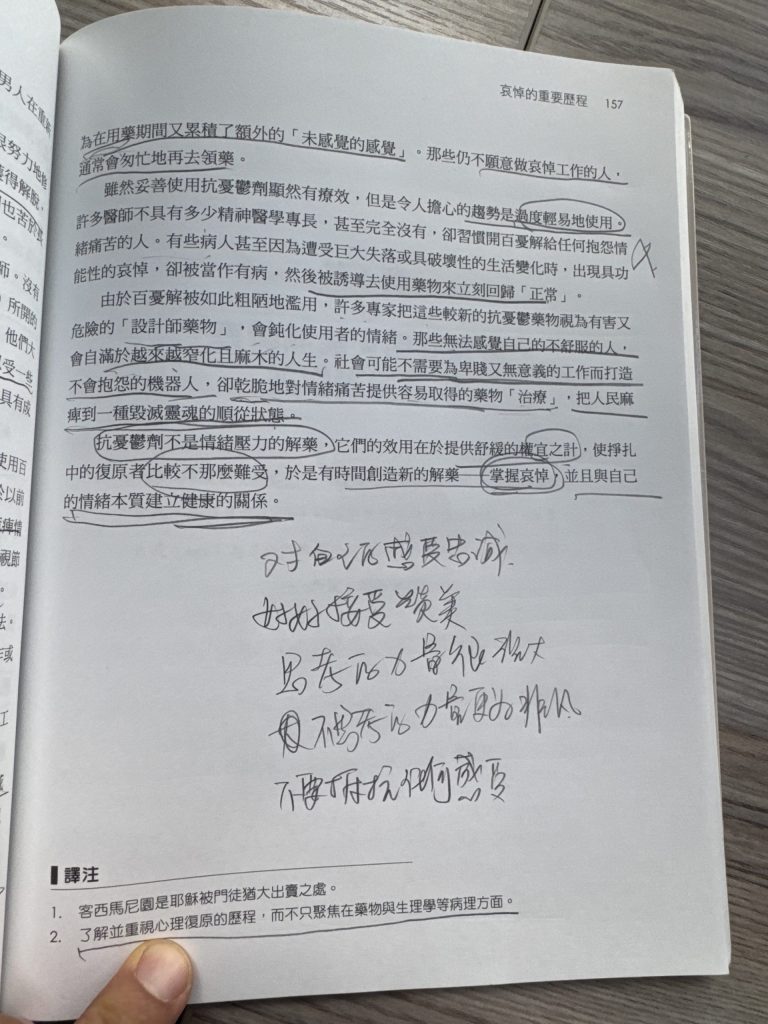 哀悼的重要歷程 157
為在用藥期間又累積了額外的「未感覺的感覺」。那些仍不願意做哀悼工作的人，
通常會匆忙地再去領藥。
雖然妥善使用抗憂鬱劑顯然有療效，但是令人擔心的趨勢是過度輕易地使用。
許多醫師不具有多少精神醫學專長，甚至完全沒有，卻習慣開百憂解給任何抱怨情
緒痛苦的人。有些病人甚至因為遭受巨大失落或具破壞性的生活變化時，出現具功
能性的哀悼，卻被當作有病，然後被誘導去使用藥物來立刻回歸「正常」。
由於百憂解被如此粗陋地濫用，許多專家把這些較新的抗憂鬱藥物視為有害又
危險的「設計師藥物」，會鈍化使用者的情緒。那些無法感覺自己的不舒服的人，
會自滿於越來越窄化且麻木的人生。社會可能不需要為卑賤又無意義的工作而打造
不會抱怨的機器人，卻乾脆地對情緒痛苦提供容易取得的藥物「治療」，把人民麻
痺到一種毀滅靈魂的順從狀態。
抗憂鬱劑不是情緒壓力的解藥，它們的效用在於提供舒緩的權宜之計，使掙扎
中的復原者比較不那麼難受，於是有時間創造新的解藥——掌握哀悼，並且與自己
的情緒本質建立健康的關係。
对自己的感受
好好接受讚美
思考的力量很強大
不思考的力量更為
不要抵抗任何感受
譯注
1. 客西馬尼園是耶穌被門徒猶大出賣之處。
2. 了解並重視心理復原的歷程，而不只聚焦在藥物與生理學等病理方面。
男人在重
很努力地
獲得解脫，
師。沒有
）所開的
他們大
受一些
具有成
使用百
於以前
痺情
視節
法。
作或
江